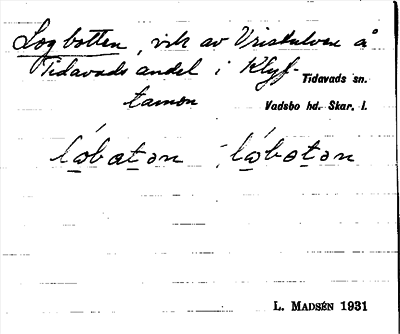 Logbotten, vik av Vristulven å
Tidavads andel i Klyf-
tamon
Tidavads sn.
Vadsbo hd. Skar. l.
L. MADSÉN 1931